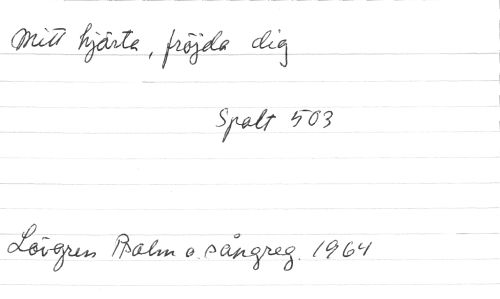 Mitt hjärta, fröjda dig
Spalt 503
Lövgren Psalm o. sångreg. 1964